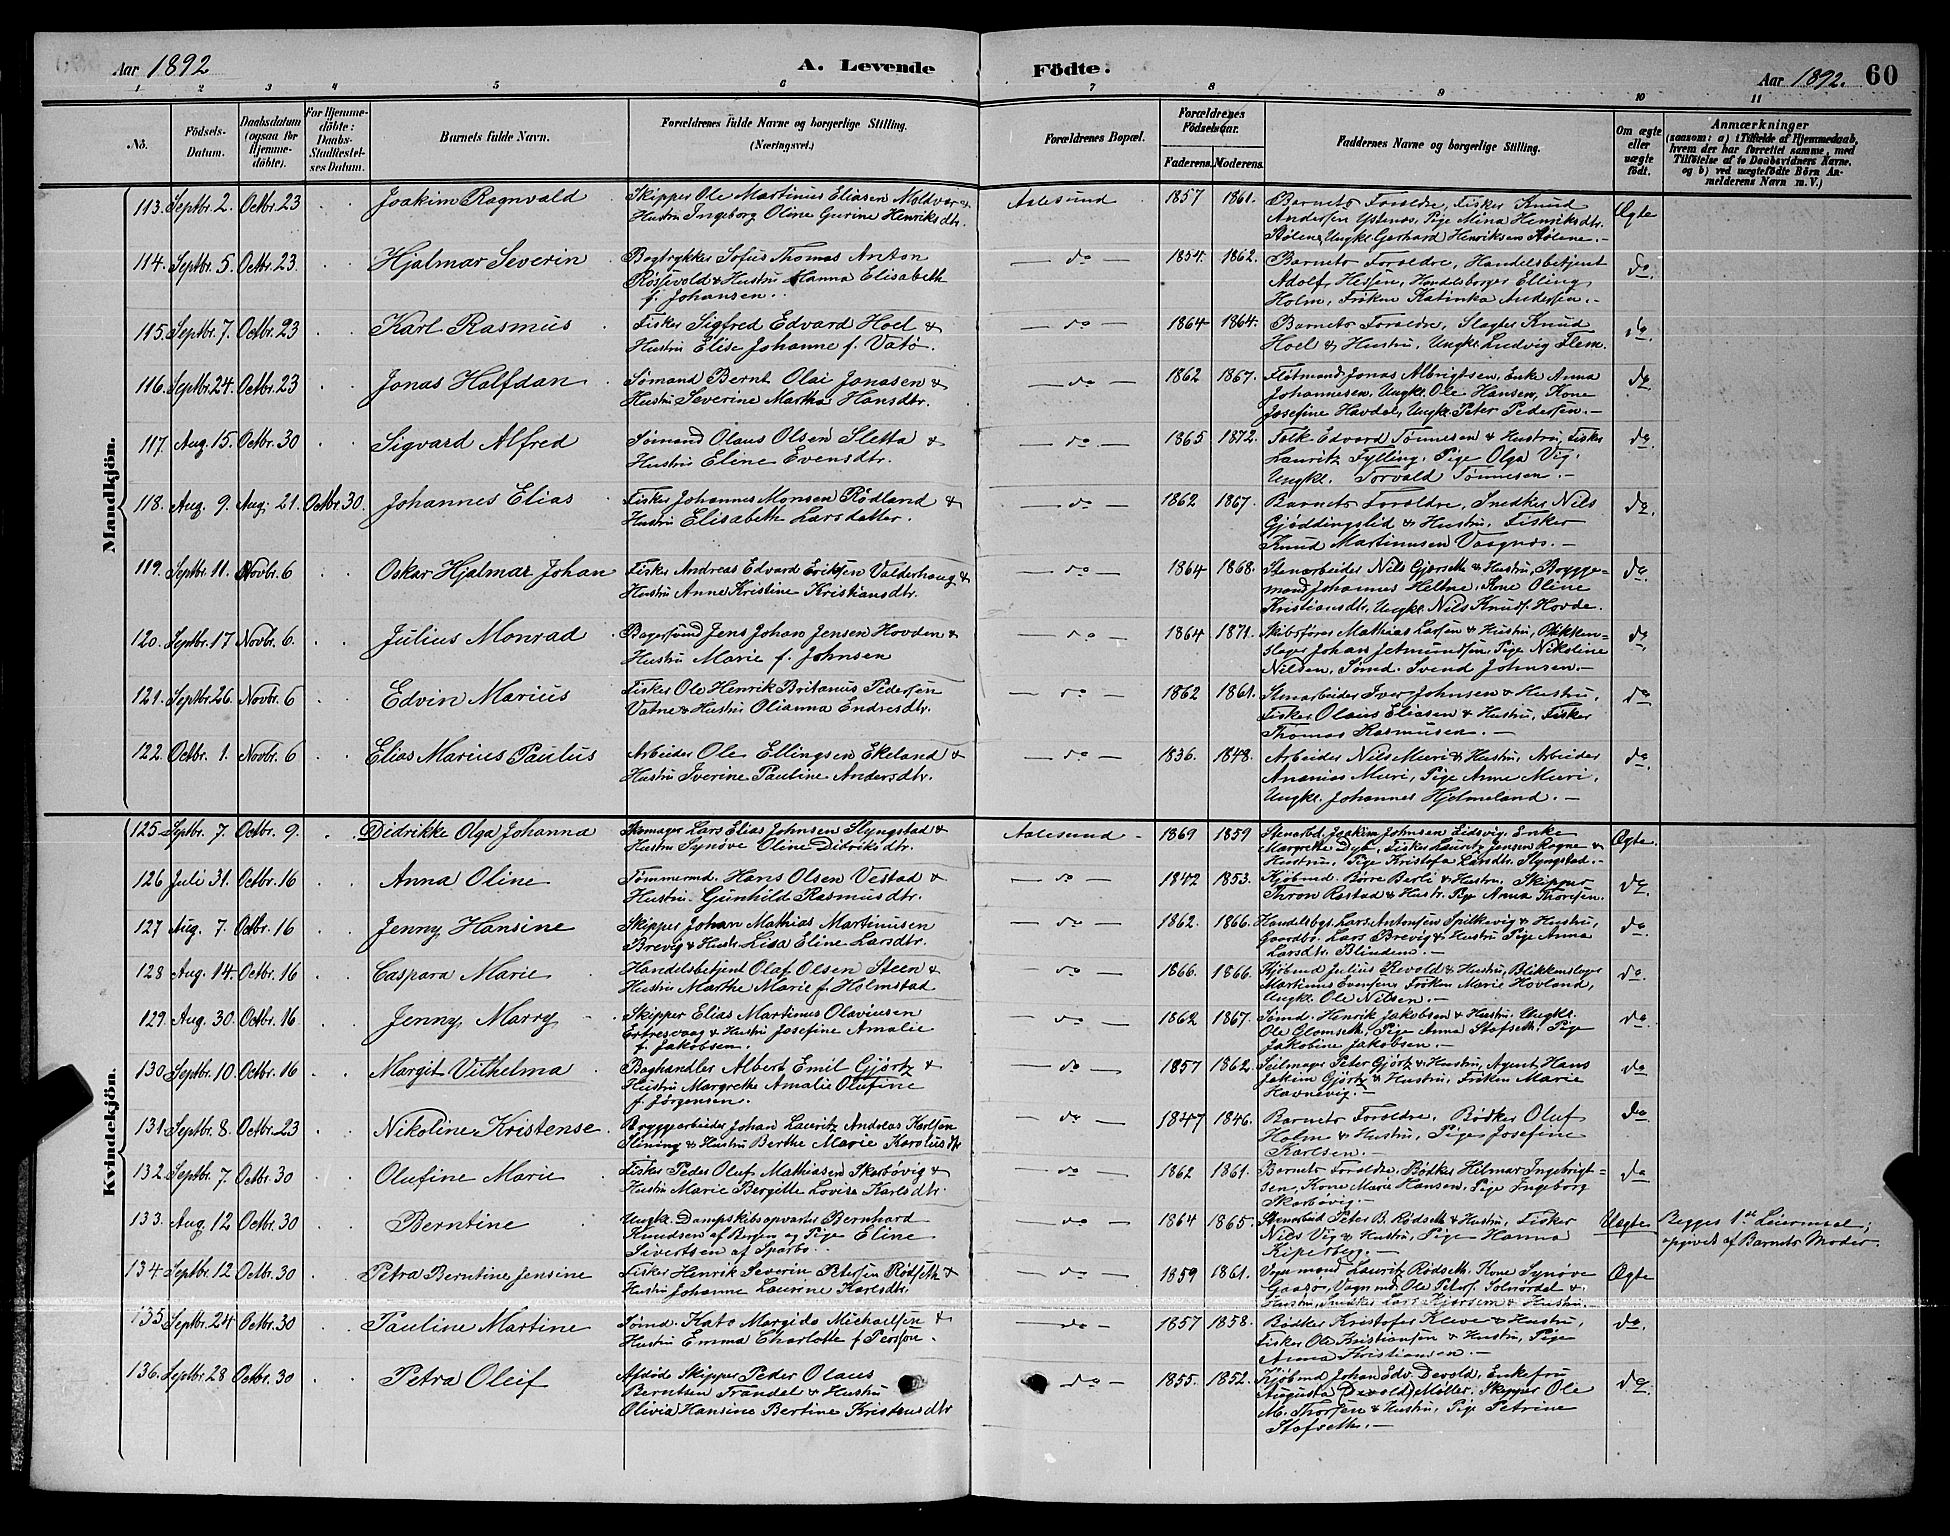 Aar 1892
A. Levende Födte.
Aar 1892. 60
1 2 3 4 5 6 7 8 9 10 11
No.
Födsels-Datum.
Daabsdatum (ogsaa for Hjemme-döbte).
For Hjemme-döbte: Daabs-Stadfæstel-ses Datum.
Barnets fulde Navn.
Forældrenes fulde Navne og borgerlige Stilling.
(Næringsvei.)
Forældrenes Bopæl.
Forældrenes Födselsaar.
Faderens. Moderens.
Faddernes Navne og borgerlige Stilling.
Om ægte eller uægte födt.
Anmærkninger
(saasom: a) i Tilfælde af Hjemmedaab, hvem der har forrettet samme, med Tilföielse af to Daabsvidners Navne, og b) ved uægtefödte Börn Anmelderens Navn m. V.)
Mandkjön.
113. Septbr. 2. Octbr. 23 Joakim Ragnvald
Skipper Ole Martinus Eliasen Moldvær &
Hustru Ingeborg Oline Gurine Henriksdtr.
Aalesund 1857 1861.
Barnets Forældre, Fisker Knud
Andersen Ystenæs, Pige Mina Henriksdtr.
Stølen, Ungkl. Gerhard Henriksen Stølene.-
Ægte
114. Septbr. 5. Octbr. 23. Hjalmar Severin
Bogtrykker Sofus Thomas Anton
Røssevold & Hustru Hanna Elisabeth
f. Johansen.
do 1854. 1862.
Barnets Forældre, Handelsbetjent
Adolf Hessen, Handelsborger Elling
Holm, Frøken Katinka Andersen.-
do.
115. Septbr. 7. Octbr. 23 Karl Rasmus
Fisker Sigfred Edvard Hoel &
Hustru Elise Johanne f. Vatø.
do 1864 1864.
Barnets Forældre, Slagter Knud
Hoel & Hustru, Ungkl. Ludvig Flem.
do.
116. Septbr. 24. Octbr. 23 Jonas Halfdan
Sømand Bernt Olai Jonasen &
Hustru Severine Martha Hansdtr.
do 1862 1867.
Fløtmand Jonas Albrigtsen, Enke Anna
Johannesen, Ungkl. Ole Hansen, Kone
Josefine Havdal, Ungkl. Peter Pedersen.-
do.
117. Aug. 15. Octbr. 30 Sigvard Alfred
Sømand Olaus Olsen Sletta &
Hustru Eline Evensdtr.
do 1865 1872.
Tolk Edvard Tønnesen & Hustru, Fisker
Lauritz Fylling, Pige Olga Vig,
Ungkl. Torvald Tønnesen -
do.
118. Aug. 9. Aug. 21. Octbr. 30. Johannes Elias
Fisker Johannes Monsen Rødland &
Hustru Elisabeth Larsdatter.
do 1862 1867.
Barnets Forældre, Snedker Nils
Gjøddingslid & Hustru, Fisker
Knud Martinusen Vaagnæs.-
do.
119. Septbr. 11. Novbr. 6 Oskar Hjalmar Johan
Fisker Andreas Edvard Eriksen Valderhaug &
Hustru Anne Kristine Kristiansdtr.
do 1864 1868.
Stenarbeider Nils Gjørseth & Hustru, Brygge-
mand Johannes Heltne, Ane Oline
Kristiansdtr, Ungkl. Nils Knuds. Hovde.
do.
120. Septbr. 17 Novbr. 6. Julius Monrad
Bagersvend Jens Johan Jensen Hovden &
Hustru Marie f. Johnsen
do 1864 1871.
Skibsfører Mathias Larsen & Hustru, Blikken-
slager Johan Jetmundsen, Pige Nikoline
Nilsen, Sømd. Svend Johnsen.-
do
121. Septbr. 26. Novbr. 6 Edvin Marius
Fisker Ole Henrik Britanus Pedersen
Vatne & Hustru Olianna Endresdtr.
do 1862 1861.
Stenarbeider Iver Johnsen & Hustru,
Fisker Olaus Eliasen & Hustru, Fisker
Thomas Rasmusen.-
do
122. Octbr. 1. Novbr. 6 Elias Marius Paulus
Arbeider Ole Ellingsen Ekeland &
Hustru Iverine Pauline Andersdtr.
do 1836. 1848.
Arbeider Nils Muri & Hustru, Arbeider
Ananias Muri, Pige Anne Muri,
Ungkl. Johannes Hjelmeland.-
do.
Kvindekjön.
125. Septbr. 7. Octbr. 9. Didrikke Olga Johanna
Skomager Lars Elias Johnsen Slyngstad &
Hustru Synøve Oline Didriksdtr.
Aalesund 1869 1859
Stenarbd. Joakim Johnsen Eidsvig, Enke
Margrethe Dyb, Fisker Lauritz Jensen Rogne &
Hustru, Pige Kristofa Larsdtr. Slyngstad.-
Ægte.
126 Juli 31. Octbr. 16 Anna Oline
Tømmermd. Hans Olsen Vestad &
Hustru Gunhild Rasmusdtr.
do 1842 1853.
Kjøbmd. Børre Berli & Hustru, Skipper
Thron Rastad & Hustr. Pige Anna Thorsen.
do.
127 Aug. 7. Octbr. 16 Jenny Hansine
Skipper Johan Mathias Martinusen
Brevig & Hustr. Lisa Eline Larsdtr.
do 1862. 1866.
Handelsbgr. Lars Antonsen Spilkevig & Hustru,
Gaardbr. Lars Brevig & Hustru, Pige Anna
Larsdtr. Blindem.-
do.
128 Aug. 14. Octbr. 16 Caspara Marie
Handelsbetjent Olaf Olsen Steen &
Hustru Marthe Marie f. Holmstad
do 1866. 1866.
Kjøbmd Julius Revold & Hustru, Blikkenslager
Martinus Evensen, Frøken Marie Hovland,
Ungkl. Ole Nilsen.-
do.
129. Aug. 30. Octbr. 16. Jenny Marry
Skipper Elias Martinus Olaviusen
Ertresvaag & Hustru Josefine Amalie
f. Jakobsen.
do 1862 1867.
Sømd. Henrik Jakobsen & Hustru, Ungkl.
Ole Glomseth, Pige Anna Stafseth, Pige
Jakobine Jakobsen.-
do.
130 Septbr. 10 Octbr. 16 Margit Vilhelma
Boghandler Albert Emil Gjørtz &
Hustru Margrethe Amalie Olufine
f. Jørgensen.
do 1857 1862.
Seilmager Peter Gjørtz & Hustru, Agent Hans
Jakim Gjørtz & Hustru, Frøken Marie
Havnevig.-
do
131. Septbr. 8. Octbr. 23 Nikoline Kristense.
Bryggearbeider Johan Lauritz Andreas Karlsen
Slining & Hustru Berthe Marie Karolusdtr
do 1847 1846.
Barnets Forældre, Bødker Oluf
Holm & Hustru, Pige Josefine
Karlsen.-
do
132. Septbr. 7. Octbr. 30 Olufine Marie
Fisker Peder Oluf Mathiasen Skarbøvig &
Hustru Marie Bergitte Lovise Karlsdtr.
do 1862 1861.
Barnets Forældre, Bødker Hilmar Ingebrigt-
sen, Kone Marie Hansen, Pige Ingeborg
Skarbøvig.-
do
133. Aug. 12 Octbr. 30 Berntine
Ungkl. Dampskibsopvarter Bernhard
Knudsen af Bergen og Pige Eline
Sivertsen af Sparbo.
do 1864 1865.
Stenarbeid Peter B. Rødseth & Hustru, Fisker
Nils Vig & Hustru, Pige Hanna
Kiperberg.-
Uægte
Begges 1ste Leiermaal;
opgivet af Barnets Moder.
134 Septbr. 12 Octbr. 30 Petra Berntine Jensine
Fisker Henrik Severin Petersen Rødseth &
Hustru Johanne Laurine Karlsdtr.
do 1859 1861.
Vognmand Lauritz Rødseth, Kone Synøve
Gaasø, Vognmd. Ole Peters. Solnørdal &
Hustru, Snedker Lars Gjørsem & Hustru.
Ægte
135. Septbr. 24 Octbr. 30 Pauline Martine
Sømd. Kato Margido Michaelsen &
Hustru Emma Charlotte f. Persson.
do 1857 1858.
Bødker Kristofer Kleve & Hustru,
Fisker Ole Kristiansen & Hustru, Pige
Anna Kristiansen.-
do.
136. Septbr. 28 Octbr. 30 Petra Oleif
Afdød Skipper Peder Olaus
Berntsen Trandal & Hustru
Olivia Hansine Bertine Kristensdtr
do 1855. 1852.
Kjøbmd Johan Edv. Devold, Enkefru
Augusta (Devold) Møller, Skipper Ole
M. Thorsen & Hustru, Pige Petrine
Stafseth.-
do